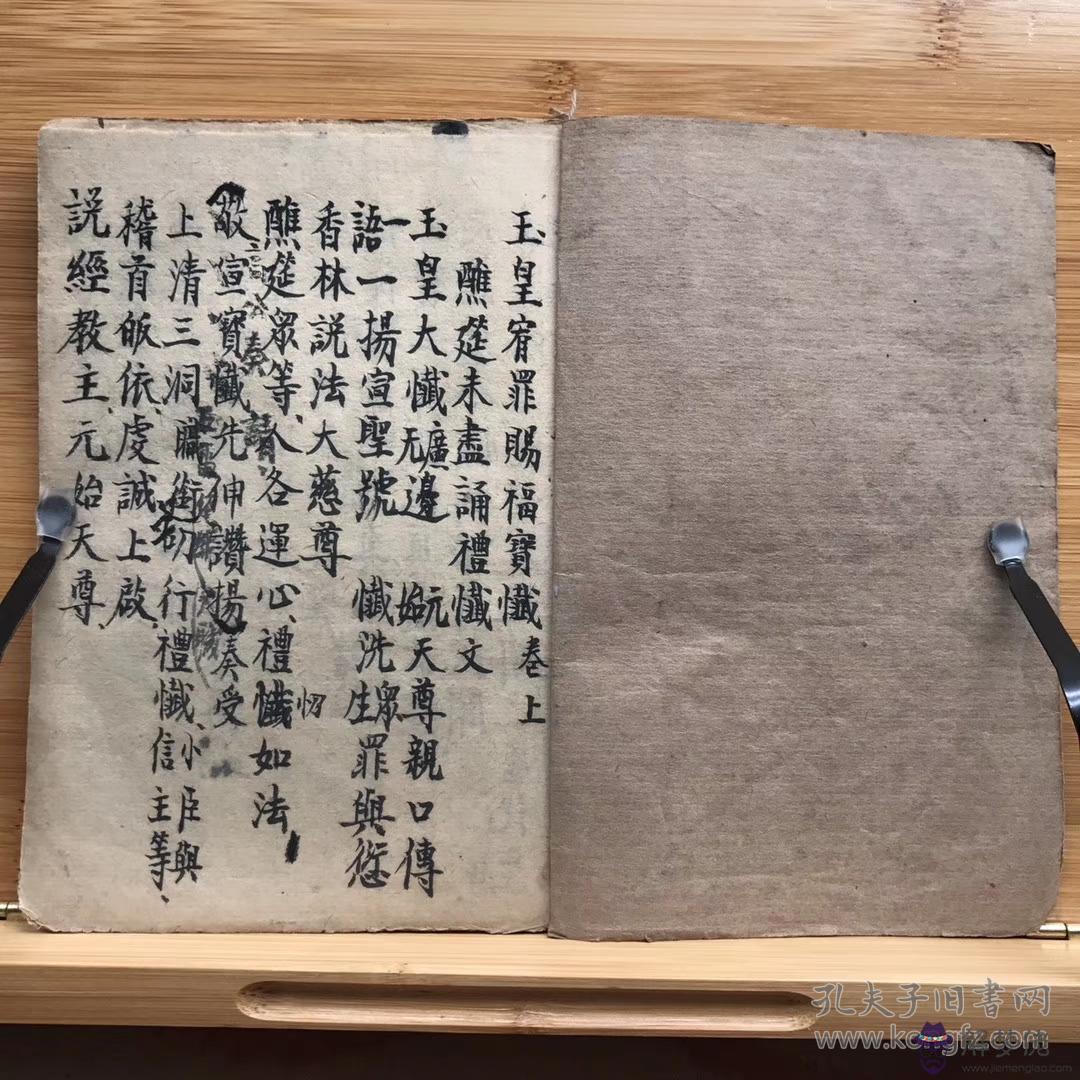 玉皇宥罪賜福寶懺卷上
醮筵未盡誦禮懺文
玉皇大懺廣无邊 元始天尊親口傳
一語一揚宣聖號 懺洗眾生罪與愆
香林說法大慈尊
醮筵眾等、人各運心、禮懺如法
敬宣寶懺先伸讚揚奏受
上清三洞職銜行禮懺、小臣與信主等、
稽首皈依、虔誠上啟、
説經教主、元始天尊、
孔夫子旧書网
www.kongfz.com
解梦说
www.jiemengjiao.com